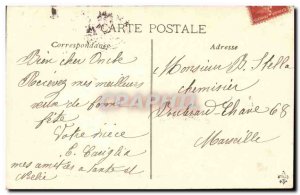 CARTE POSTALE
Correspondance
Adresse
Bien cher Oncle
Recevez mes meilleurs
de bonne
fête
Votre nièce
E.
mes amitiés a tante et
Monsieur B. Stella
chemisier
Boulevard Chave 68
Marseille